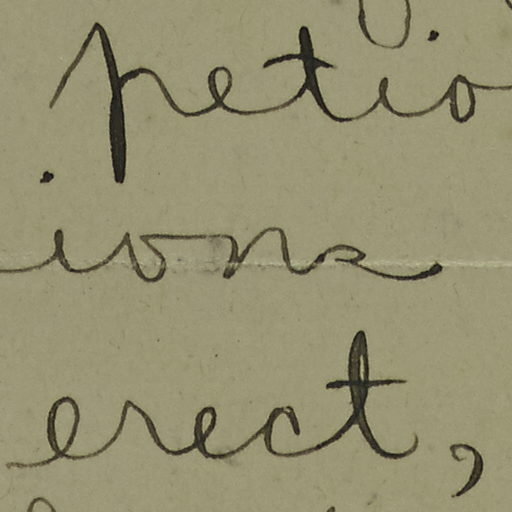 petio
ions
erect,